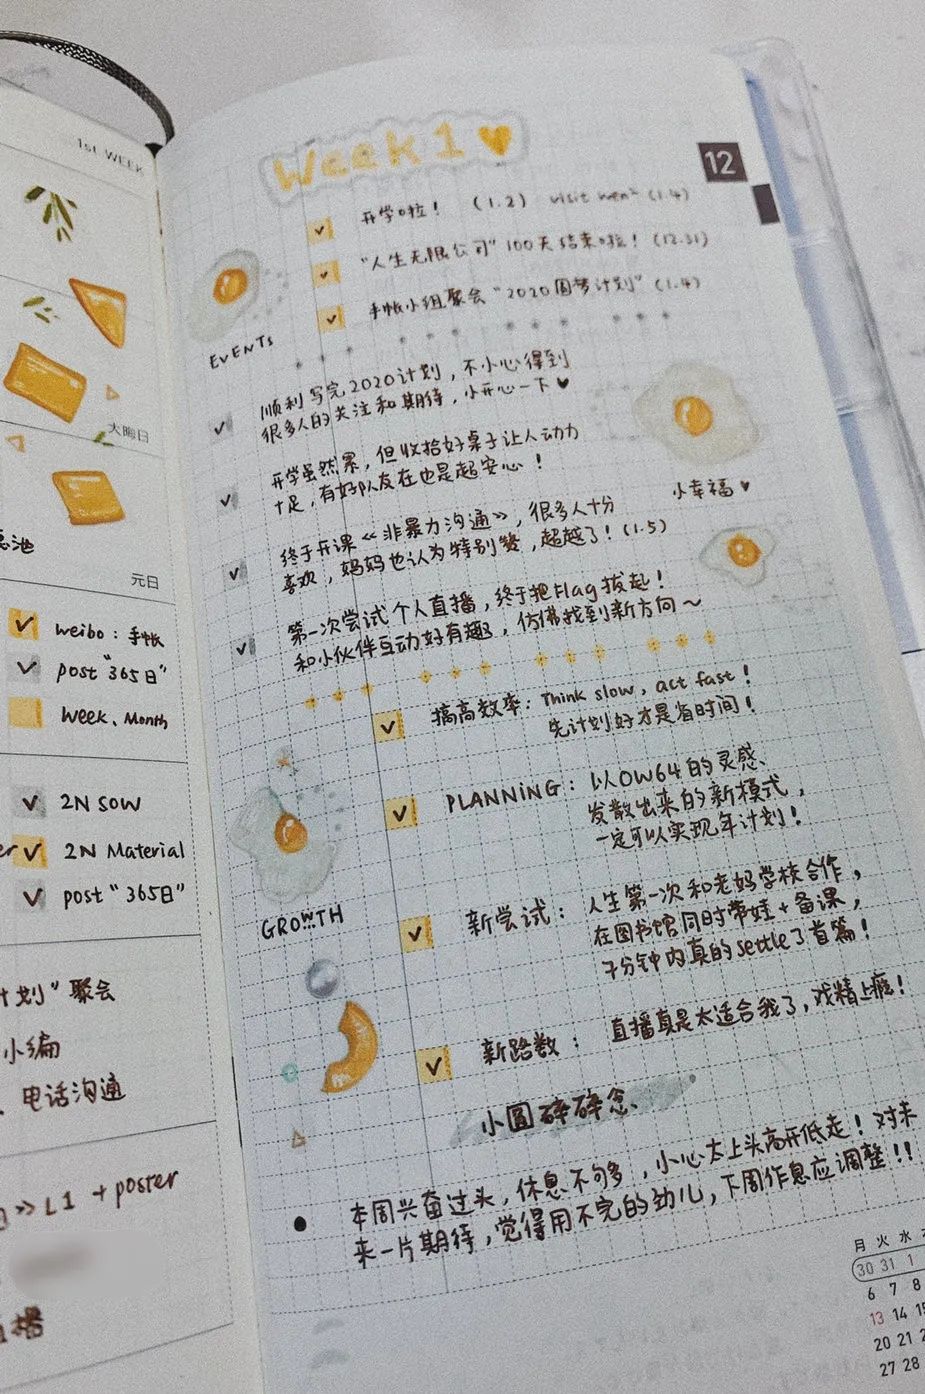 1st WEEK
大晦日
池
元日
weibo：手帐
post "365日"
Week、Month
2N SOW
2N Material
post "365日"
计划" 聚会
小编
、电话沟通
>> L1 + poster
播
Week 1
12
开学啦！ (1.2) visit wen² (1.4)
"人生无限公司" 100天结束啦！(12.31)
手帐小组聚会 "2020圆梦计划" (1.4)
EVENTS
顺利写完2020计划，不小心得到
很多人的关注和期待，小开心一下♥
开学虽然累，但收拾好桌子让人动力
十足，有好队友在也是超安心！
小幸福♥
终于开课《非暴力沟通》，很多人十分
喜欢，妈妈也认为特别赞，超越了！(1.5)
第一次尝试个人直播，终于把Flag拔起！
和小伙伴互动好有趣，仿佛找到新方向～
搞高效率：Think slow, act fast！
先计划好才是省时间！
PLANNING：以OW64的灵感、
发散出来的新模式，
一定可以实现年计划！
GROWTH
新尝试：人生第一次和老妈学校合作，
在图书馆同时带娃+备课，
7分钟内真的settle了首篇！
新路数：直播真是太适合我了，戏精上瘾！
小圆碎碎念、
● 本周兴奋过头，休息不够多，小心太上头高开低走！对未
来一片期待，觉得用不完的劲儿，下周作息应调整！！
月 火 水
30 31 1
6 7 8
13 14
20 21
27 28